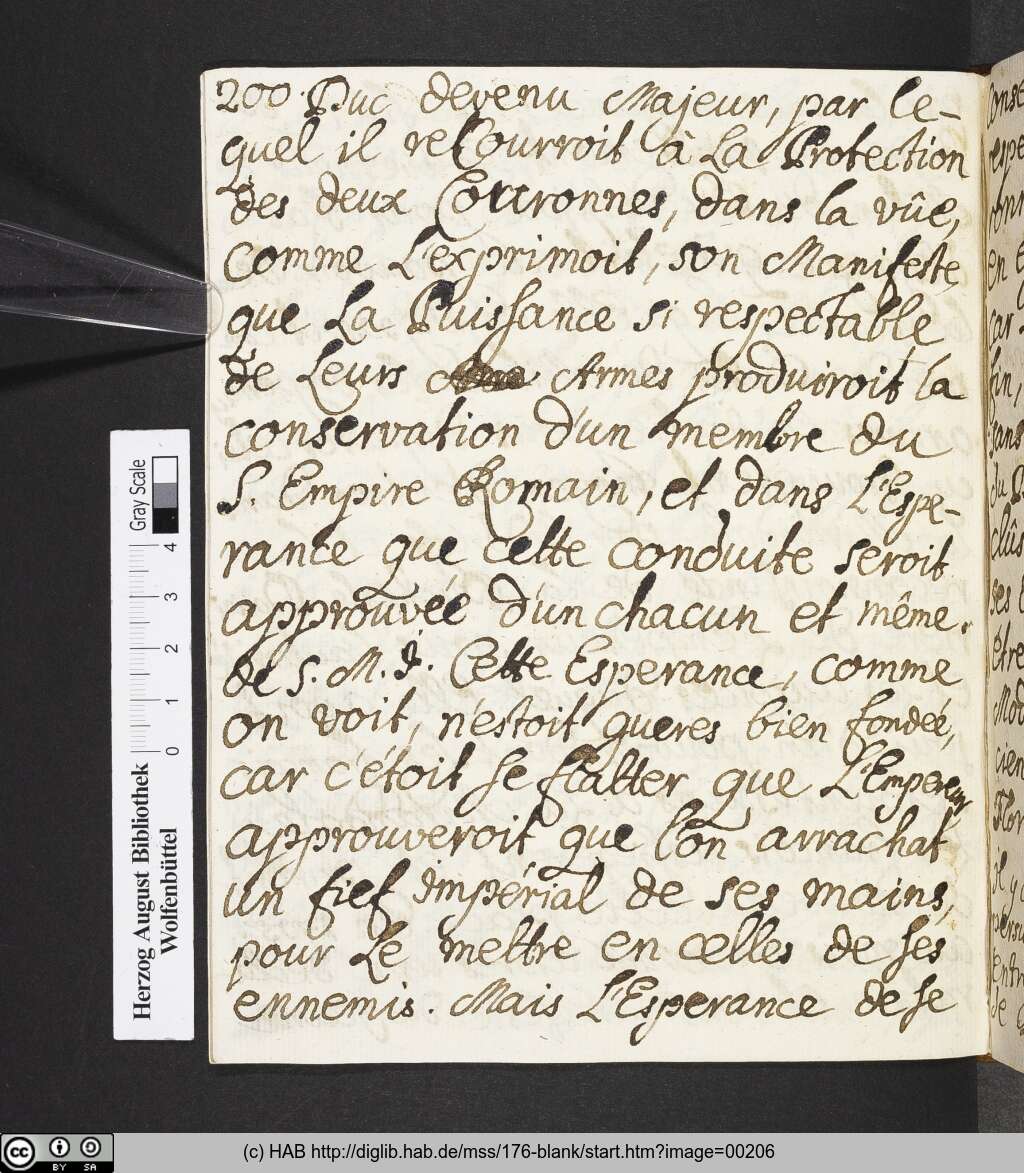 200. Duc devenu Majeur, par le-
quel il recourroit à La Protection
des deux Couronnes, dans la vûe,
comme L'exprimoit, son Manifeste
que La Puissance si respectable
de Leurs Armes produiroit la
conservation d'un membre du
S. Empire Romain, et dans L'Espe-
rance que cette conduite seroit
approuvée d'un chacun et même
de S. M. I. Cette Esperance, comme
on voit, n'estoit gueres bien fondeé,
car c'étoit se flatter que L'Empereur
approuveroit que l'on arrachat
un fief Impérial de ses mains,
pour Le mettre en celles de ses
ennemis. Mais L'Esperance de se
Herzog August Bibliothek
Wolfenbüttel
Gray Scale
0 1 2 3 4
(c) HAB http://diglib.hab.de/mss/176-blank/start.htm?image=00206
cc BY SA